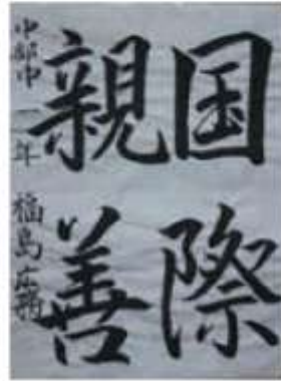 国際
親善
中部中 一年 福島広